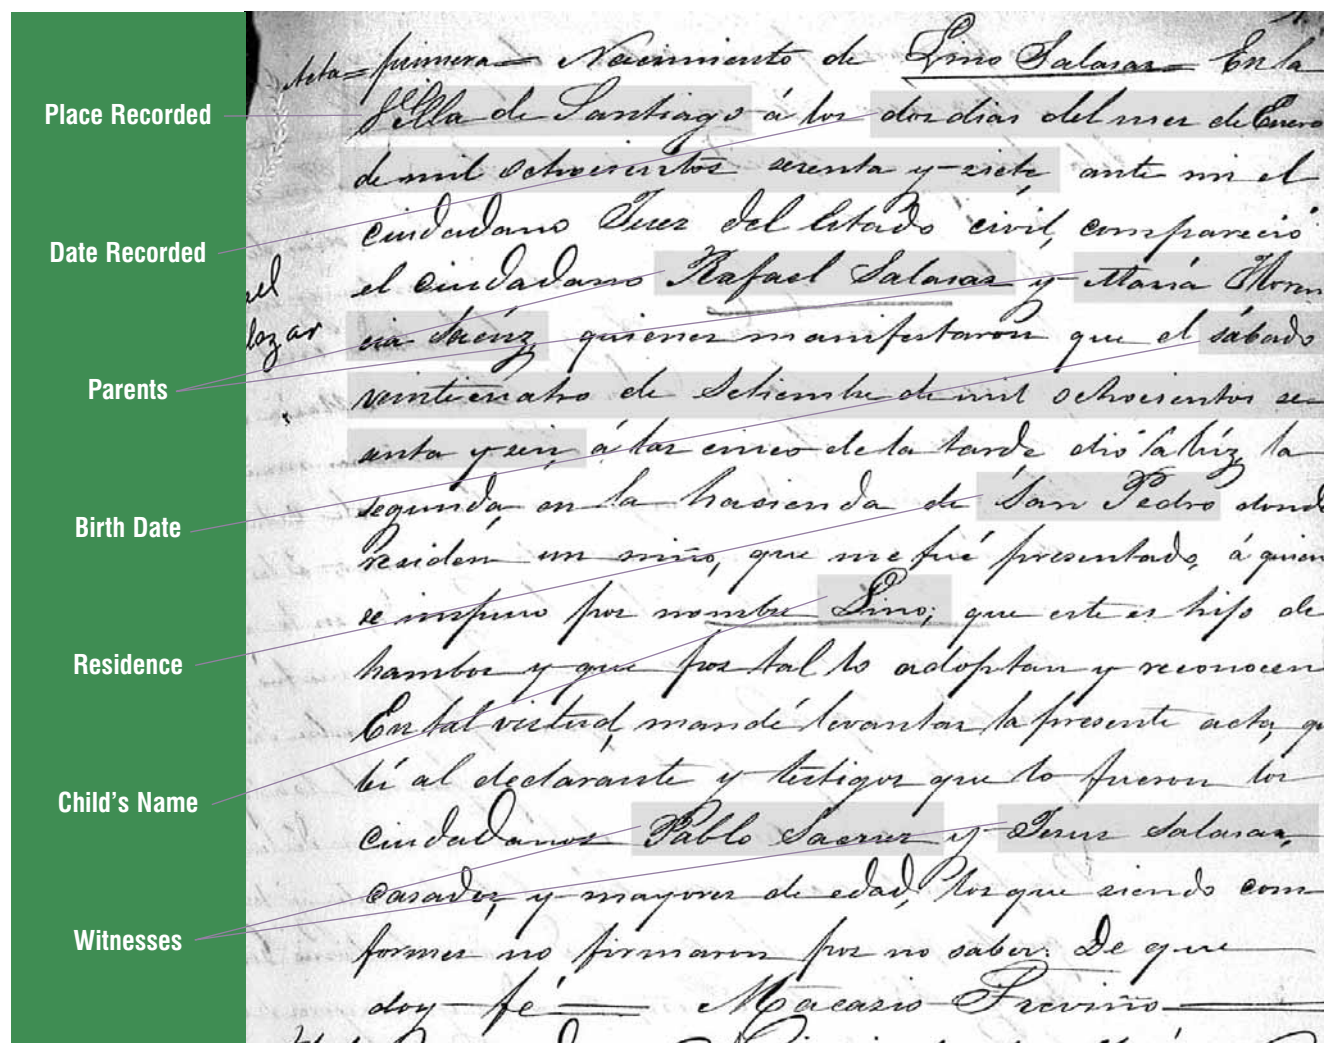 Place Recorded
Date Recorded
Parents
Birth Date
Residence
Child's Name
Witnesses
Acta = primera = Nacimiento de Lino Salasar = En la
Villa de Santiago á los dos dias del mes de Enero
de mil ochocientos sesenta y siete ante mi el
ciudadano Juez del Estado civil, compareció
el ciudadano Rafael Salasar y María Floren
cia Saénz, quienes manifestaron que el sábado
veinticuatro de Setiembre de mil ochocientos se-
senta y seis, á las cinco de la tarde dió la lúz, la
segunda en la hacienda de San Pedro donde
residen un niño, que me fué presentado, á quien
se inpuso por nombre Lino; que este es hijo de
hambos y que por tal lo adoptan y reconocen
En tal virtud, mandé levantar la presente acta, q
leí al declarante y testigos que lo fueron los
ciudadanos Pablo Saenz y Jesus Salasar,
casados, y mayores de edad, los que siendo con-
formes no firmaron por no saber. De que
doy fé = Macario Treviño